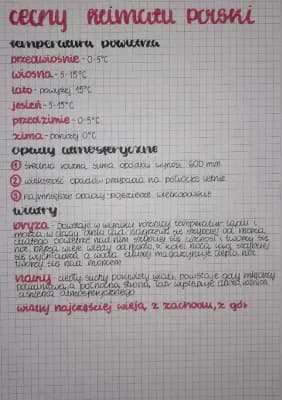 cechy klimatu Polski
temperatura powietrza
przedwiośnie - 0-5°C
wiosna - 5-15°C
lato - powyżej 15°C
jesień - 5-15°C
przedzimie - 0-5°C
zima - poniżej 0°C
opady atmosferyczne
① średnia roczna suma opadów wynosi 600 mm
② większość opadów przypada na półrocze letnie
③ najmniejsze opady: pojezierze wielkopolskie
wiatry
bryza - powstaje w wyniku różnicy temperatur lądu i
morza, w ciągu dnia ląd nagrzewa się szybciej od morza,
dlatego powietrze nad nim szybciej się unosi i tworzy się
się wychładza, a woda dłużej magazynuje ciepło, niż
tworzy się nad morzem
halny - ciepły suchy porywisty wiatr, powstaje gdy między
południową a północną stroną tatr występuje duża różnica
ciśnienia atmosferycznego
wiatry najczęściej wieją z zachodu, z gór